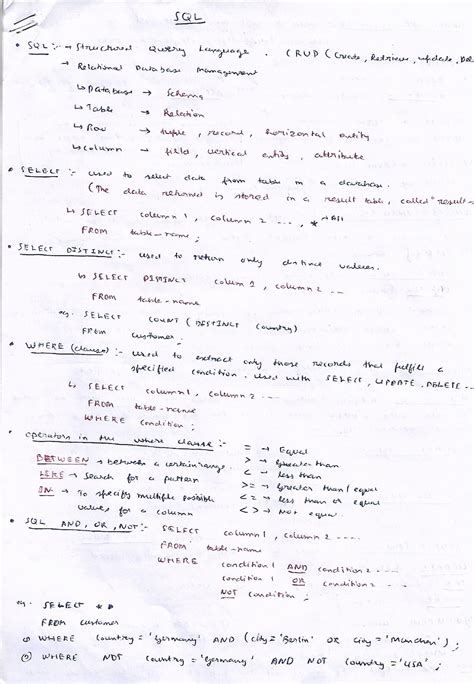 SQL
• SQL :- → Structured Query Language. CRUD (Create, Retrieve, update, DE
→ Relational Database Management
↳ Database → Schema
↳ Table → Relation
↳ Row → tuple, record, horizontal entity
↳ column → field, vertical entity, attribute
• SELECT :- used to select data from table in a database.
(The data returned is stored in a result table, called "result-
↳ SELECT column1, column2 ..., * → All
FROM table-name;
• SELECT DISTINCT :- used to return only distinct values.
↳ SELECT DISTINCT column1, column2 ---
FROM table-name
eg. SELECT COUNT (DISTINCT country)
FROM customer;
• WHERE (clause) :- used to extract only those records that fulfill a
specified condition. used with SELECT, UPDATE, DELETE --
↳ SELECT column1, column2 ---
FROM table-name
WHERE condition;
• operators in the where clause :- = → Equal
BETWEEN → between a certain range. > → Greater than
LIKE → Search for a pattern < → less than
IN → To specify multiple possible >= → Greater than / equal
values for a column <= → less than or equal
<> → Not equal
• SQL AND, OR, NOT :- SELECT column1, column2 ....
FROM table-name
WHERE condition1 AND condition2 ....
condition1 OR condition2 ....
NOT condition;
eg. SELECT *
FROM customer
① WHERE country = 'Germany' AND (city = 'Berlin' OR city = 'Munchen');
② WHERE NOT country = 'Germany' AND NOT country = 'USA';